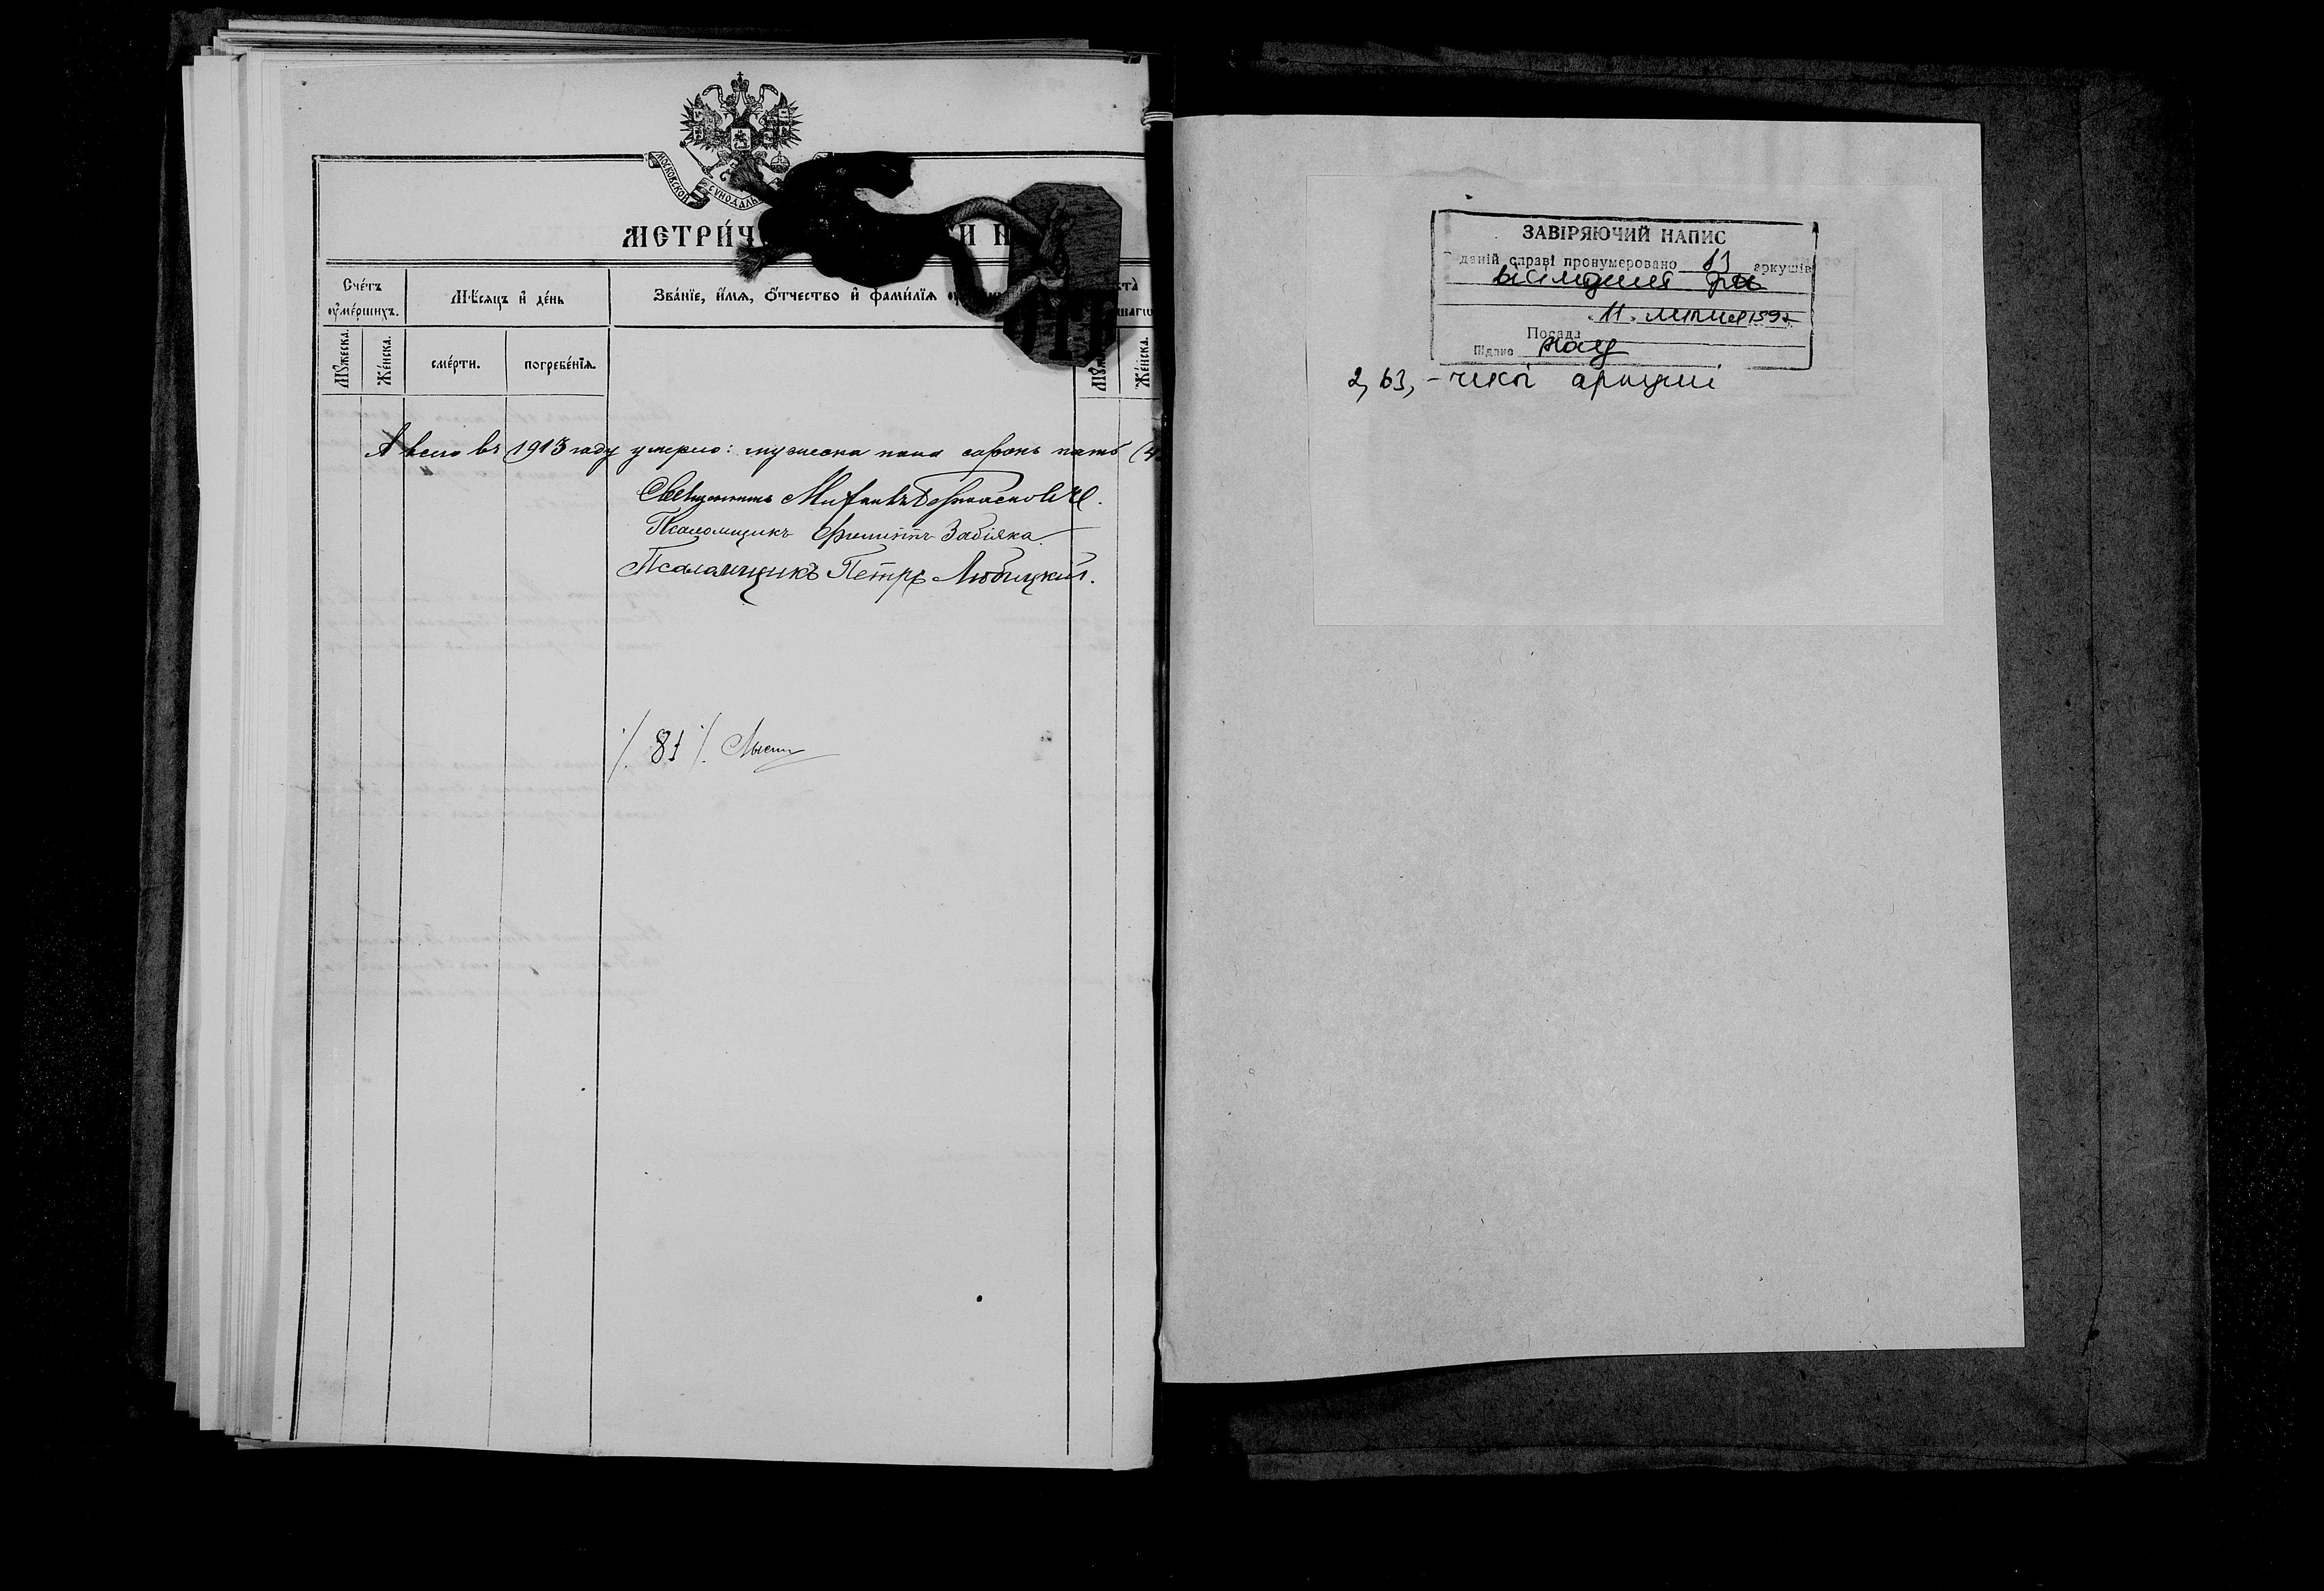 МОСКОВСКОЙ СѴНОДАЛЬ
МЕТРИ́Ч И Н
Сче́тъ ᲂу҆ме́ршихъ.
Мѣ́сѧцъ и҆ де́нь
Зва́нїе, и҆́мѧ, ѻ҆́тчество и҆ фами́лїѧ
Мꙋ́жеска.
Же́нска.
сме́рти.
погребе́нїѧ.
Же́нска.
А всего въ 1913 году умерло: мужеска пола сорокъ пять (4
Священникъ Михаилъ
Псаломщикъ Филиппъ Забіяка.
Псаломщикъ Петръ Любицкій.
/. 81 /.
ЗАВІРЯЮЧИЙ НАПИС
даній справі пронумеровано 83 аркушів
вісімдесят три
11.
Посада
Підпис
2, 83, - чисті аркуші